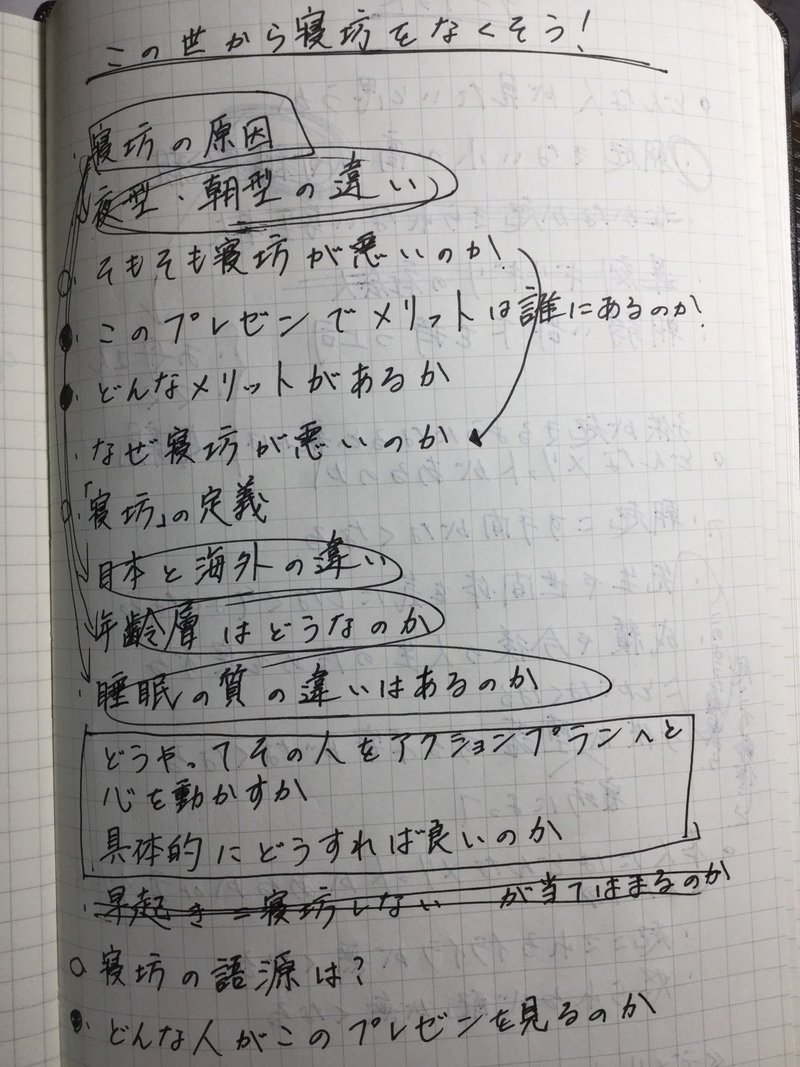 この世から寝坊をなくそう!
・寝坊の原因
・夜型・朝型の違い
・そもそも寝坊が悪いのか
・このプレゼンでメリットは誰にあるのか
・どんなメリットがあるか
・なぜ寝坊が悪いのか
・「寝坊」の定義
・日本と海外の違い
・年齢層はどうなのか
・睡眠の質の違いはあるのか
どうやってその人をアクションプランへと
心を動かすか
具体的にどうすれば良いのか
・早起き=寝坊しない が当てはまるのか
○寝坊の語源は?
・どんな人がこのプレゼンを見るのか